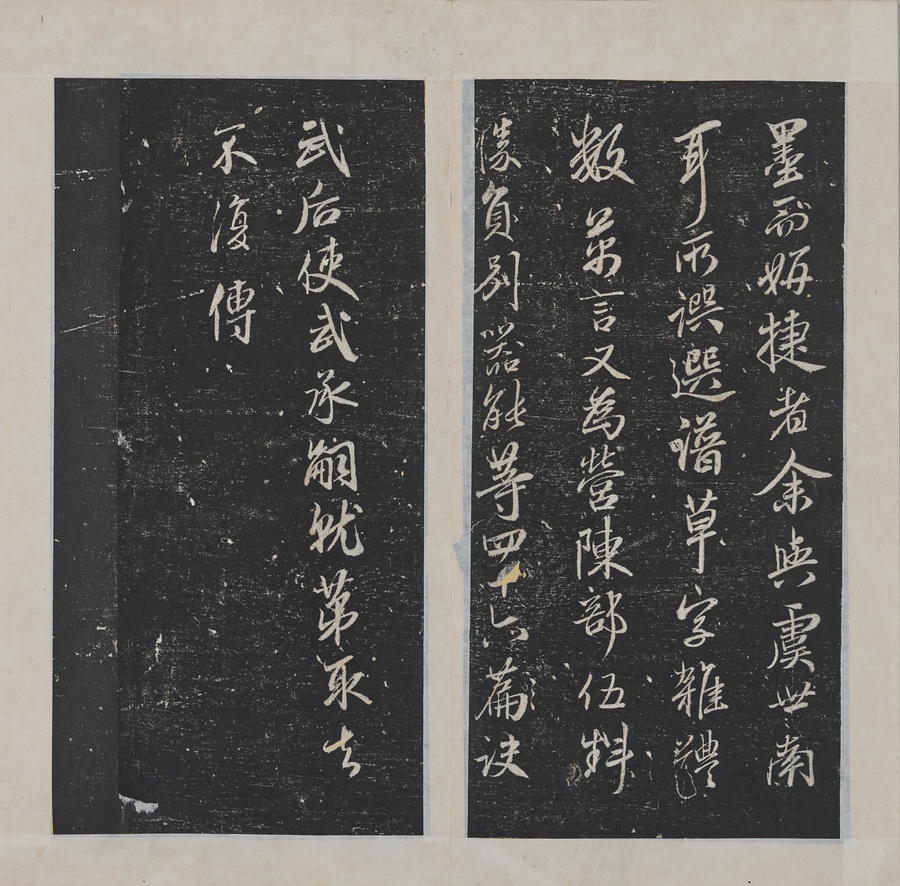 墨而妍捷者余與虞世南
耳所譔選譜草字雜體
數萬言又為營陳部伍料
勝負別器能等四十六篇訣
武后使武承嗣就第取去
不復傳